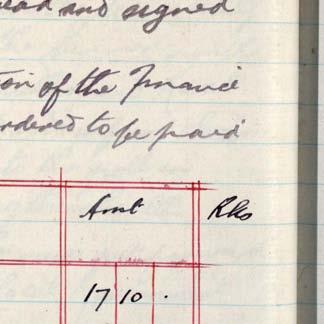 read and signed
tion of the Finance
ordered to be paid
Amt Rks
17 10 .